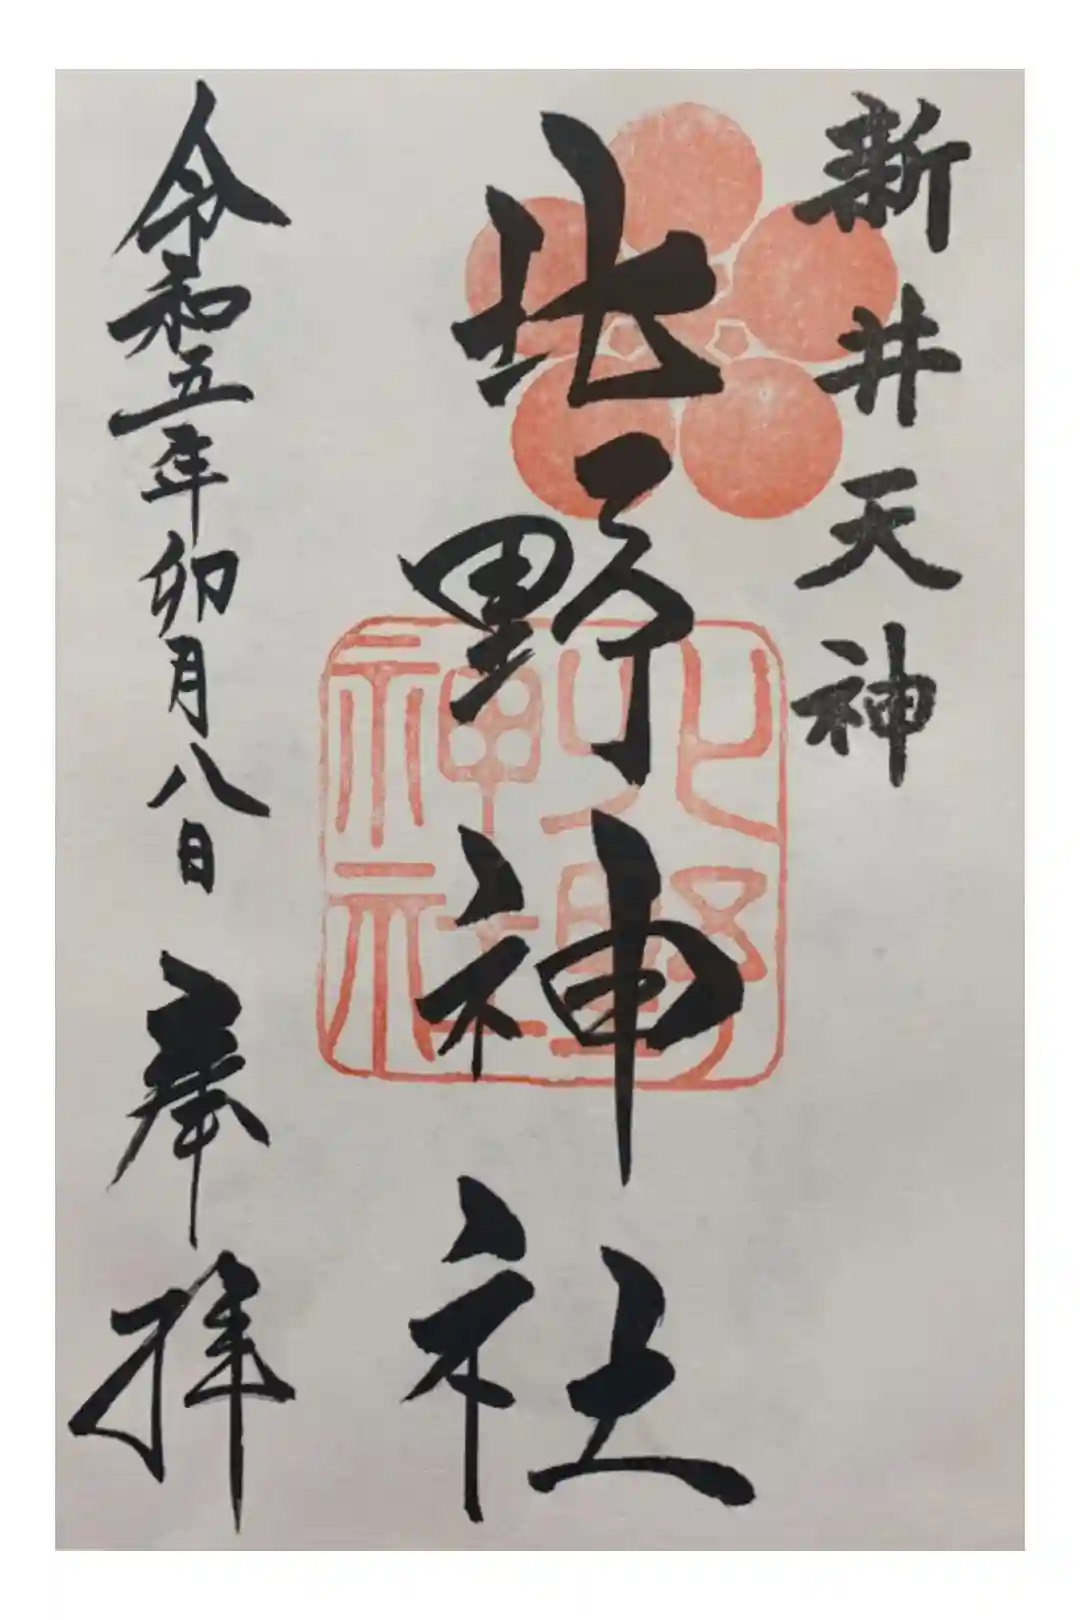 新井天神
北野神社
北野神社
令和五年卯月八日 奉拝